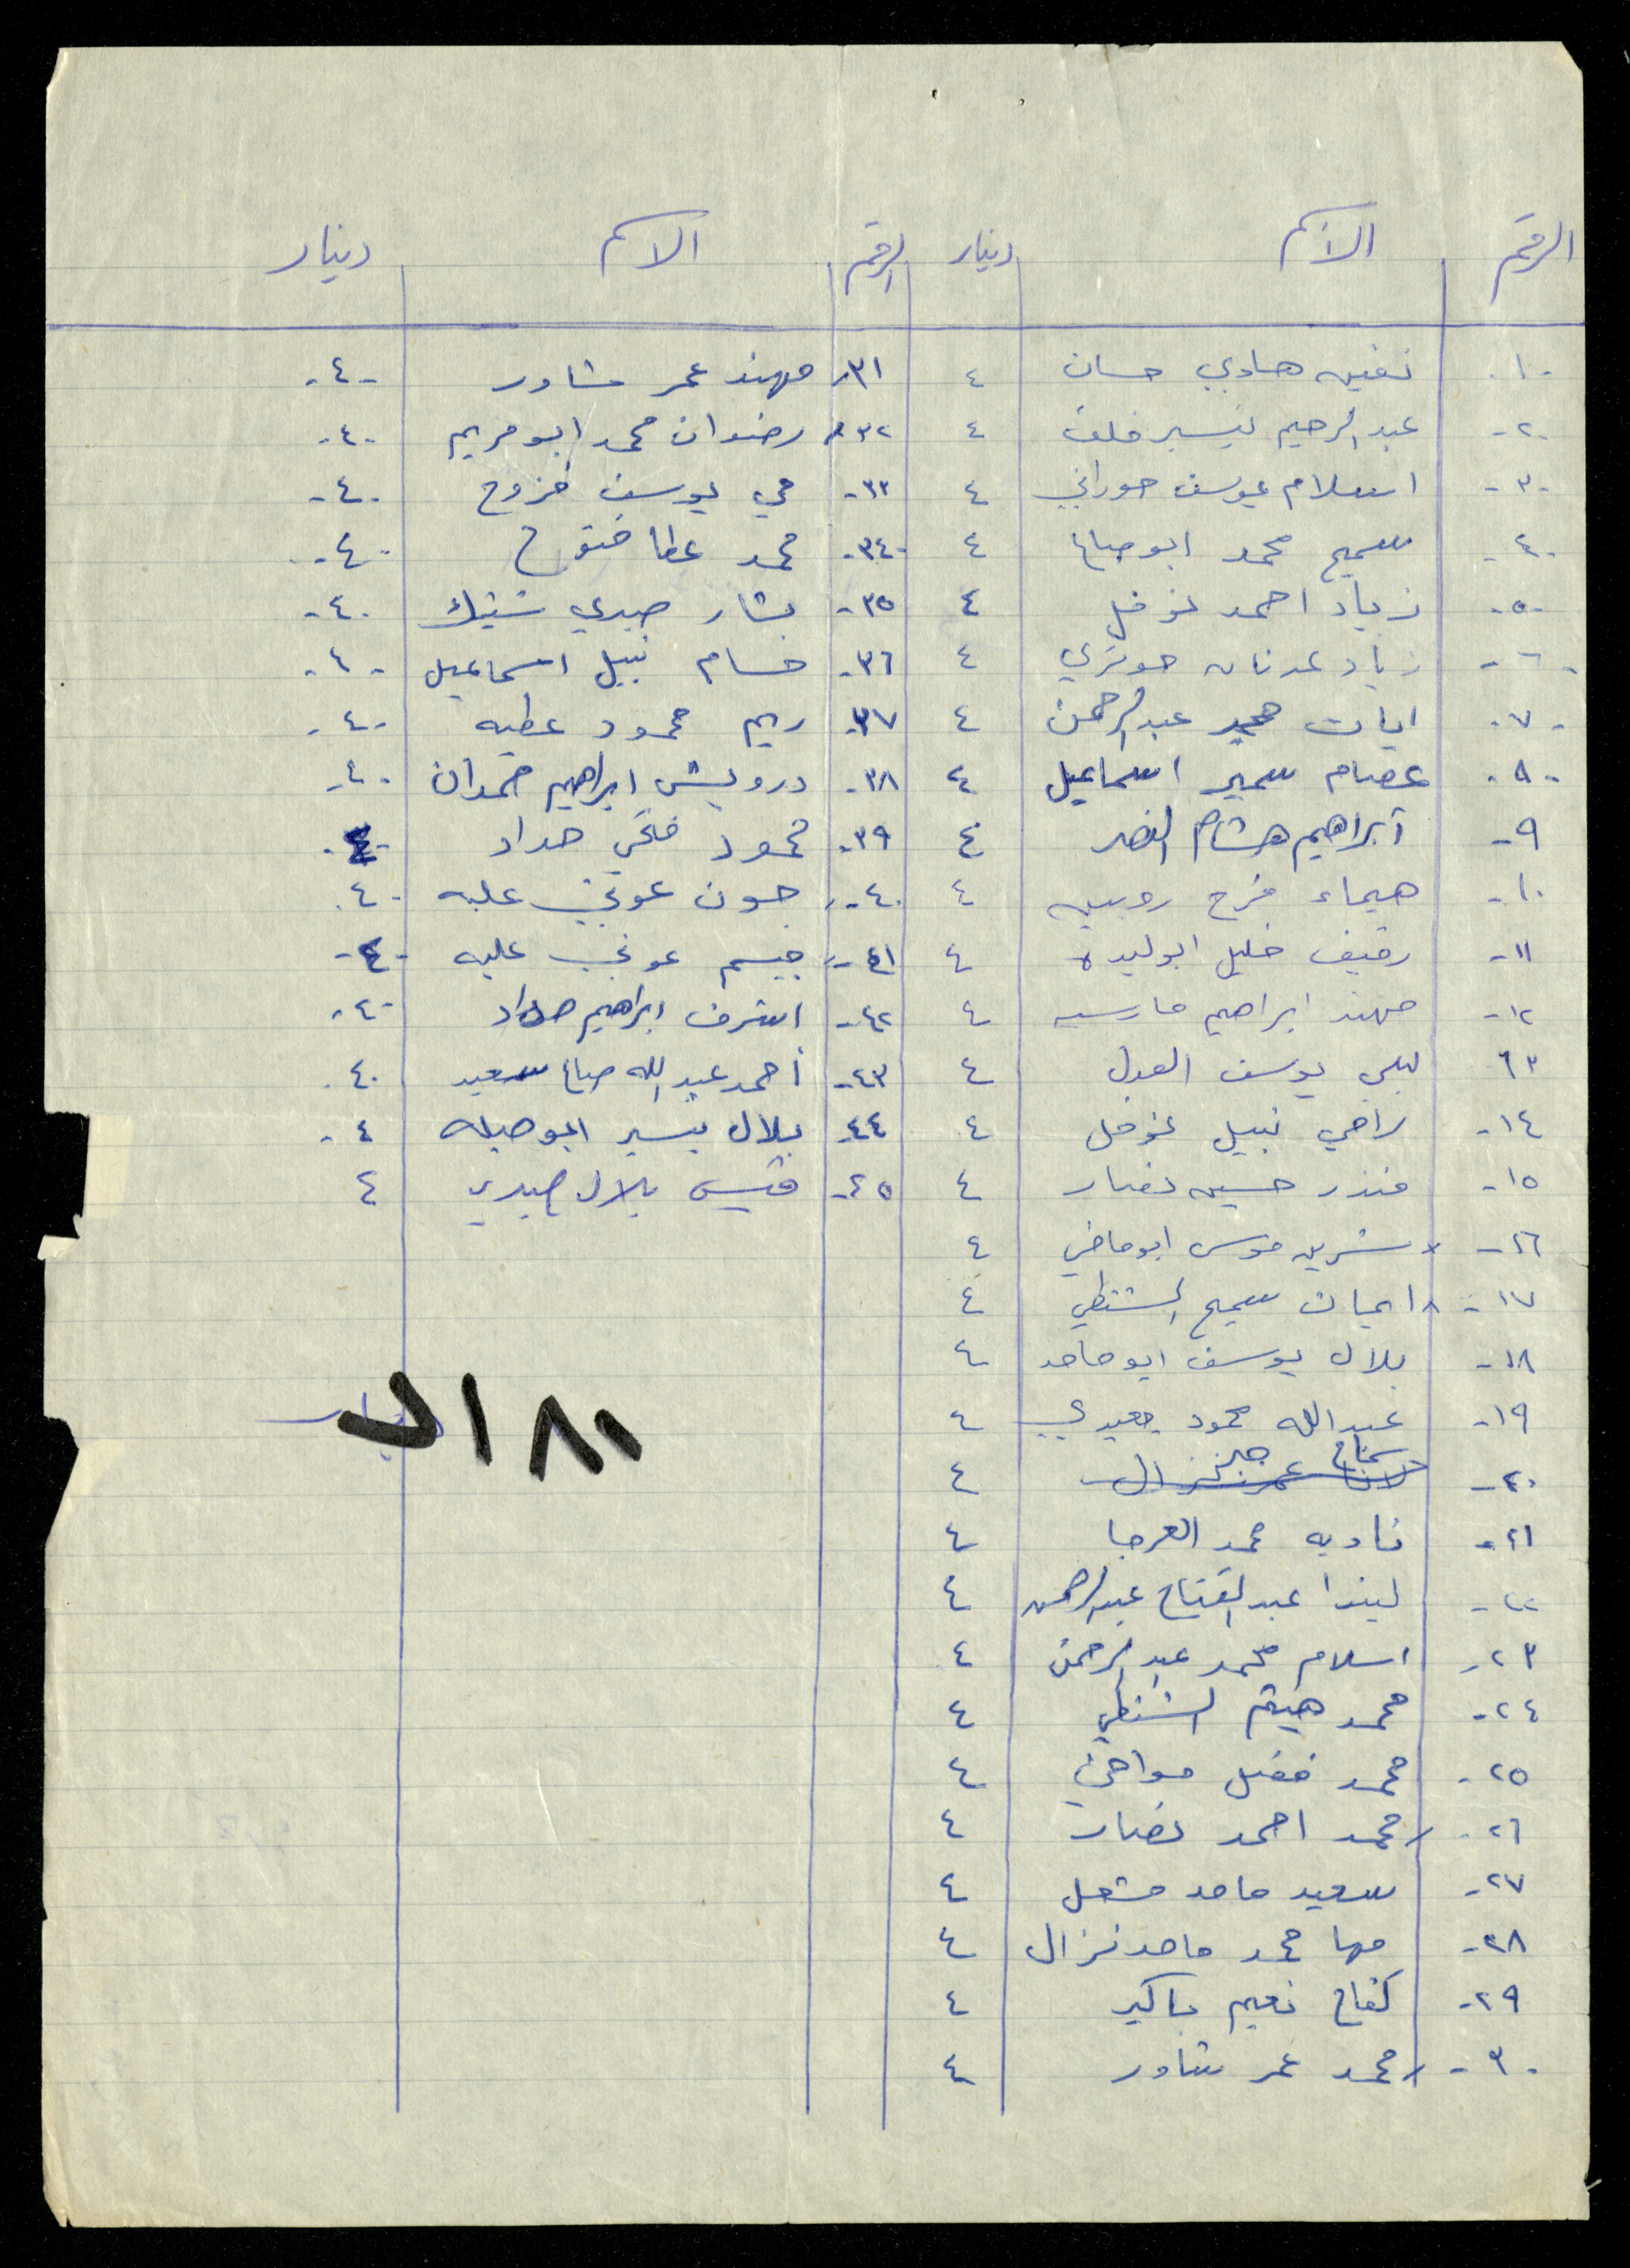 الرقم الاسم دينار الرقم الاسم دينار
-١- هادي حسان ٤
-٢- عبدالرحيم تيسير خلف ٤
-٣- اسلام يوسف حوراني ٤
-٤- سميح محمد ابو صباح ٤
-٥- زياد احمد نوفل ٤
-٦- زياد عدنان ٤
-٧- ايات محمد عبدالرحمن ٤
-٨- عصام سمير اسماعيل ٤
٩- ابراهيم هشام النصر ٤
١٠- هيماء فرج روبين ٤
١١- رفيف خليل ابو لبده ٤
١٢- مهند ابراهيم فارس ٤
١٣ يوسف العدل ٤
١٤- راضي نبيل نوفل ٤
١٥- منذر حسين نصار ٤
١٦- شرين موسى ابو ماضي ٤
١٧- ايمان سميح الشنطي ٤
١٨- بلال يوسف ابو حامد ٤
١٩- عبدالله محمود ٤
٢٠- ٤
٢١- ناديه محمد العرجا ٤
٢٢- ليندا عبدالفتاح عبدالرحمن ٤
٢٣- اسلام محمد عبدالرحمن ٤
٢٤- محمد هيثم الشنطي ٤
٢٥- محمد فضل ٤
٢٦- محمد احمد نصار ٤
٢٧- سعيد حامد مشعل ٤
٢٨- مها محمد حامد نزال ٤
٢٩- كفاح نعيم باكير ٤
-٣٠- محمد عمر شاور ٤
٣١- مهند عمر شاور -٤-
٣٢- رضوان محمد ابو مريم -٤-
٣٣- مي يوسف فروح -٤-
٣٤- محمد عطا فتوح -٤-
٣٥- بشار صبري شتيك -٤-
٣٦- حسام نبيل اسماعيل -٤-
٣٧- ريم محمود عطيه -٤-
٣٨- درويش ابراهيم حمدان -٤-
٣٩- محمود فتحي حداد -٤-
٤٠- جون عوني علبه -٤-
٤١- جيسم عوني علبه -٤-
٤٢- اشرف ابراهيم حداد -٤-
٤٣- أحمد عبدالله صباح سعيد ٤-
٤٤- بلال تيسير ابو صبله ٤-
٤٥- قيس بلال صبري ٤
١٨٠